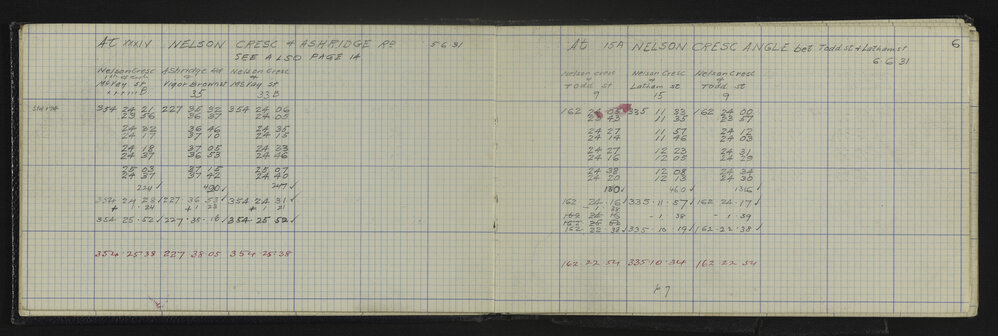 At XXXIV NELSON CRESC & ASHRIDGE RD 5 6 31
SEE ALSO PAGE 14
Nelson Cresc Ashridge Rd Nelson Cresc
McVay st Vigor Brown st McVay st
XXXIII B 35 33 B
354 24 21 227 35 32 354 24 06
23 56 36 37 24 05
24 32 36 46 24 35
24 17 37 10 24 15
24 18 37 05 24 33
24 37 36 53 24 46
25 03 37 15 25 07
24 37 37 42 24 40
224 √ 420 √ 247 √
354 24 28 √ 227 36 53 √ 354 24 31 √
+ 1 24 + 1 23 + 1 21
354 25 52 √ 227 38 16 √ 354 25 52 √
354 25 38 227 38 05 354 25 38
6
At 15A NELSON CRESC ANGLE bet Todd st & Latham st
6 6 31
Nelson Cresc Nelson Cresc Nelson Cresc
Todd st Latham st Todd st
9 15 9
162 24 03 335 11 33 162 24 00
23 43 11 35 23 57
24 27 11 57 24 12
24 14 11 46 24 03
24 27 12 23 24 31
24 16 12 05 24 29
24 38 12 08 24 34
24 20 12 13 24 30
180 √ 460 √ 136 √
162 24 16 √ 335 11 57 √ 162 24 17 √
- 1 38 - 1 38 - 1 39
162 22 38 √ 335 10 19 √ 162 22 38 √
162 22 54 335 10 34 162 22 54